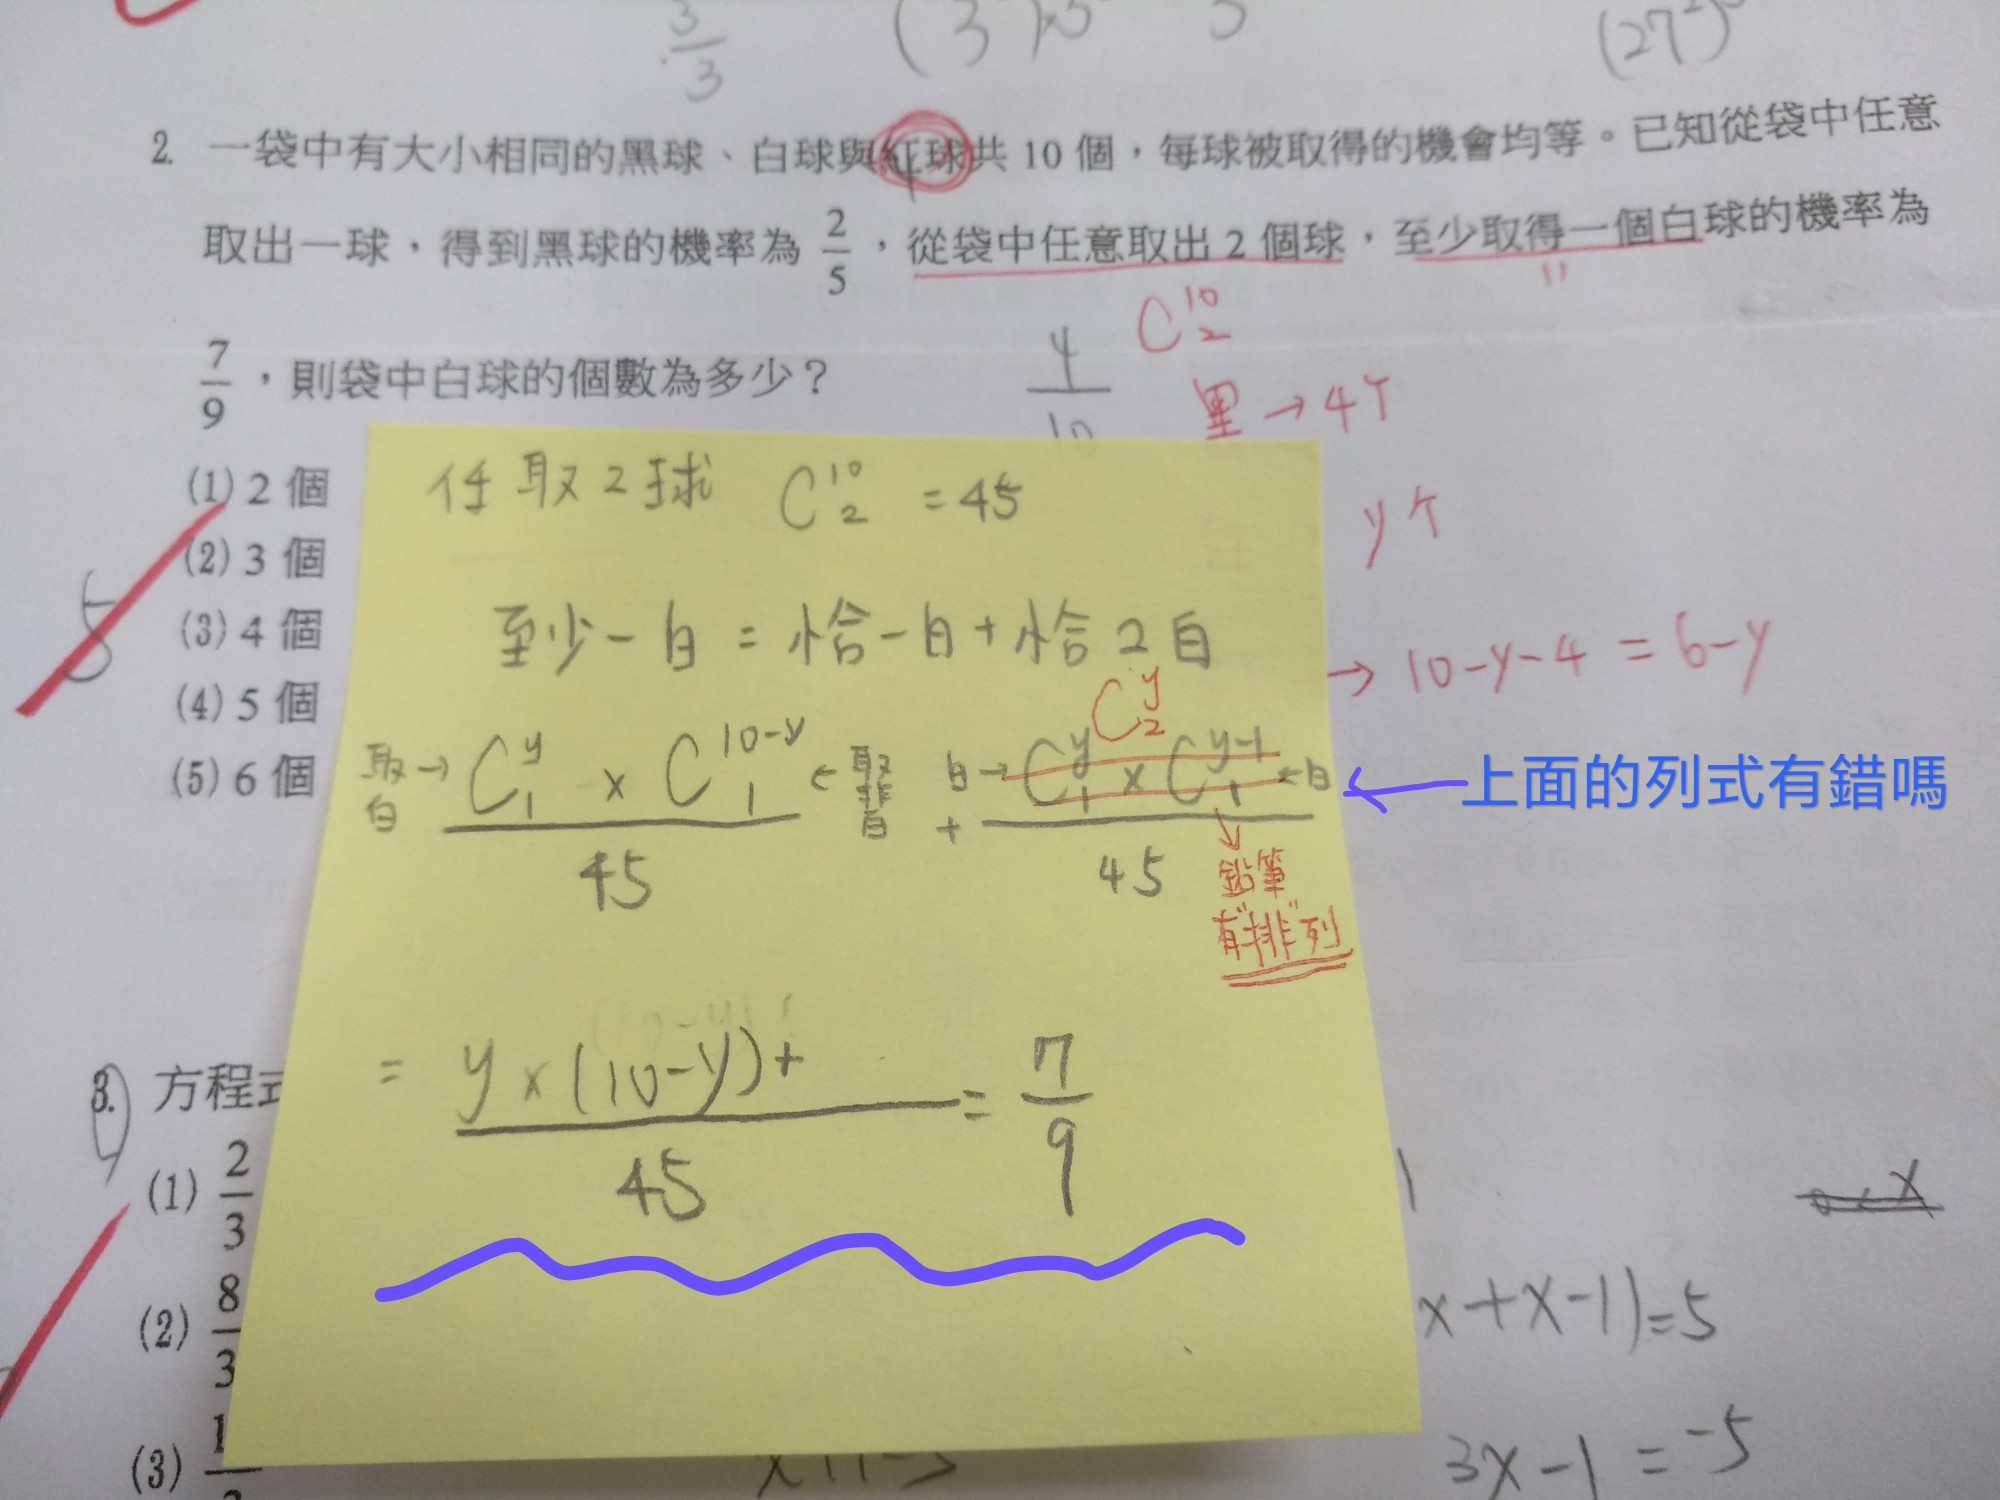 2. 一袋中有大小相同的黑球、白球與紅球共 10 個，每球被取得的機會均等。已知從袋中任意
取出一球，得到黑球的機率為 2/5，從袋中任意取出 2 個球，至少取得一個白球的機率為
7/9，則袋中白球的個數為多少？
4/10
C^10_2
黑 → 4个
y个
→ 10-y-4 = 6-y
(1) 2 個
(2) 3 個
(3) 4 個
(4) 5 個
(5) 6 個
5
任取2球 C^10_2 = 45
至少一白 = 恰一白 + 恰2白
C^y_2
取白→ C^y_1 × C^10-y_1 ←取非白 + 白→ C^y_1 × C^y-1_1 ←白
45 45
鉛筆
有"排"列
上面的列式有錯嗎
= y×(10-y)+ / 45 = 7/9
3. 方程式
(1) 2/3
(2) 8/3
(3) 1
x+x-1)=5
3x-1 = -5
3/3
(27²)